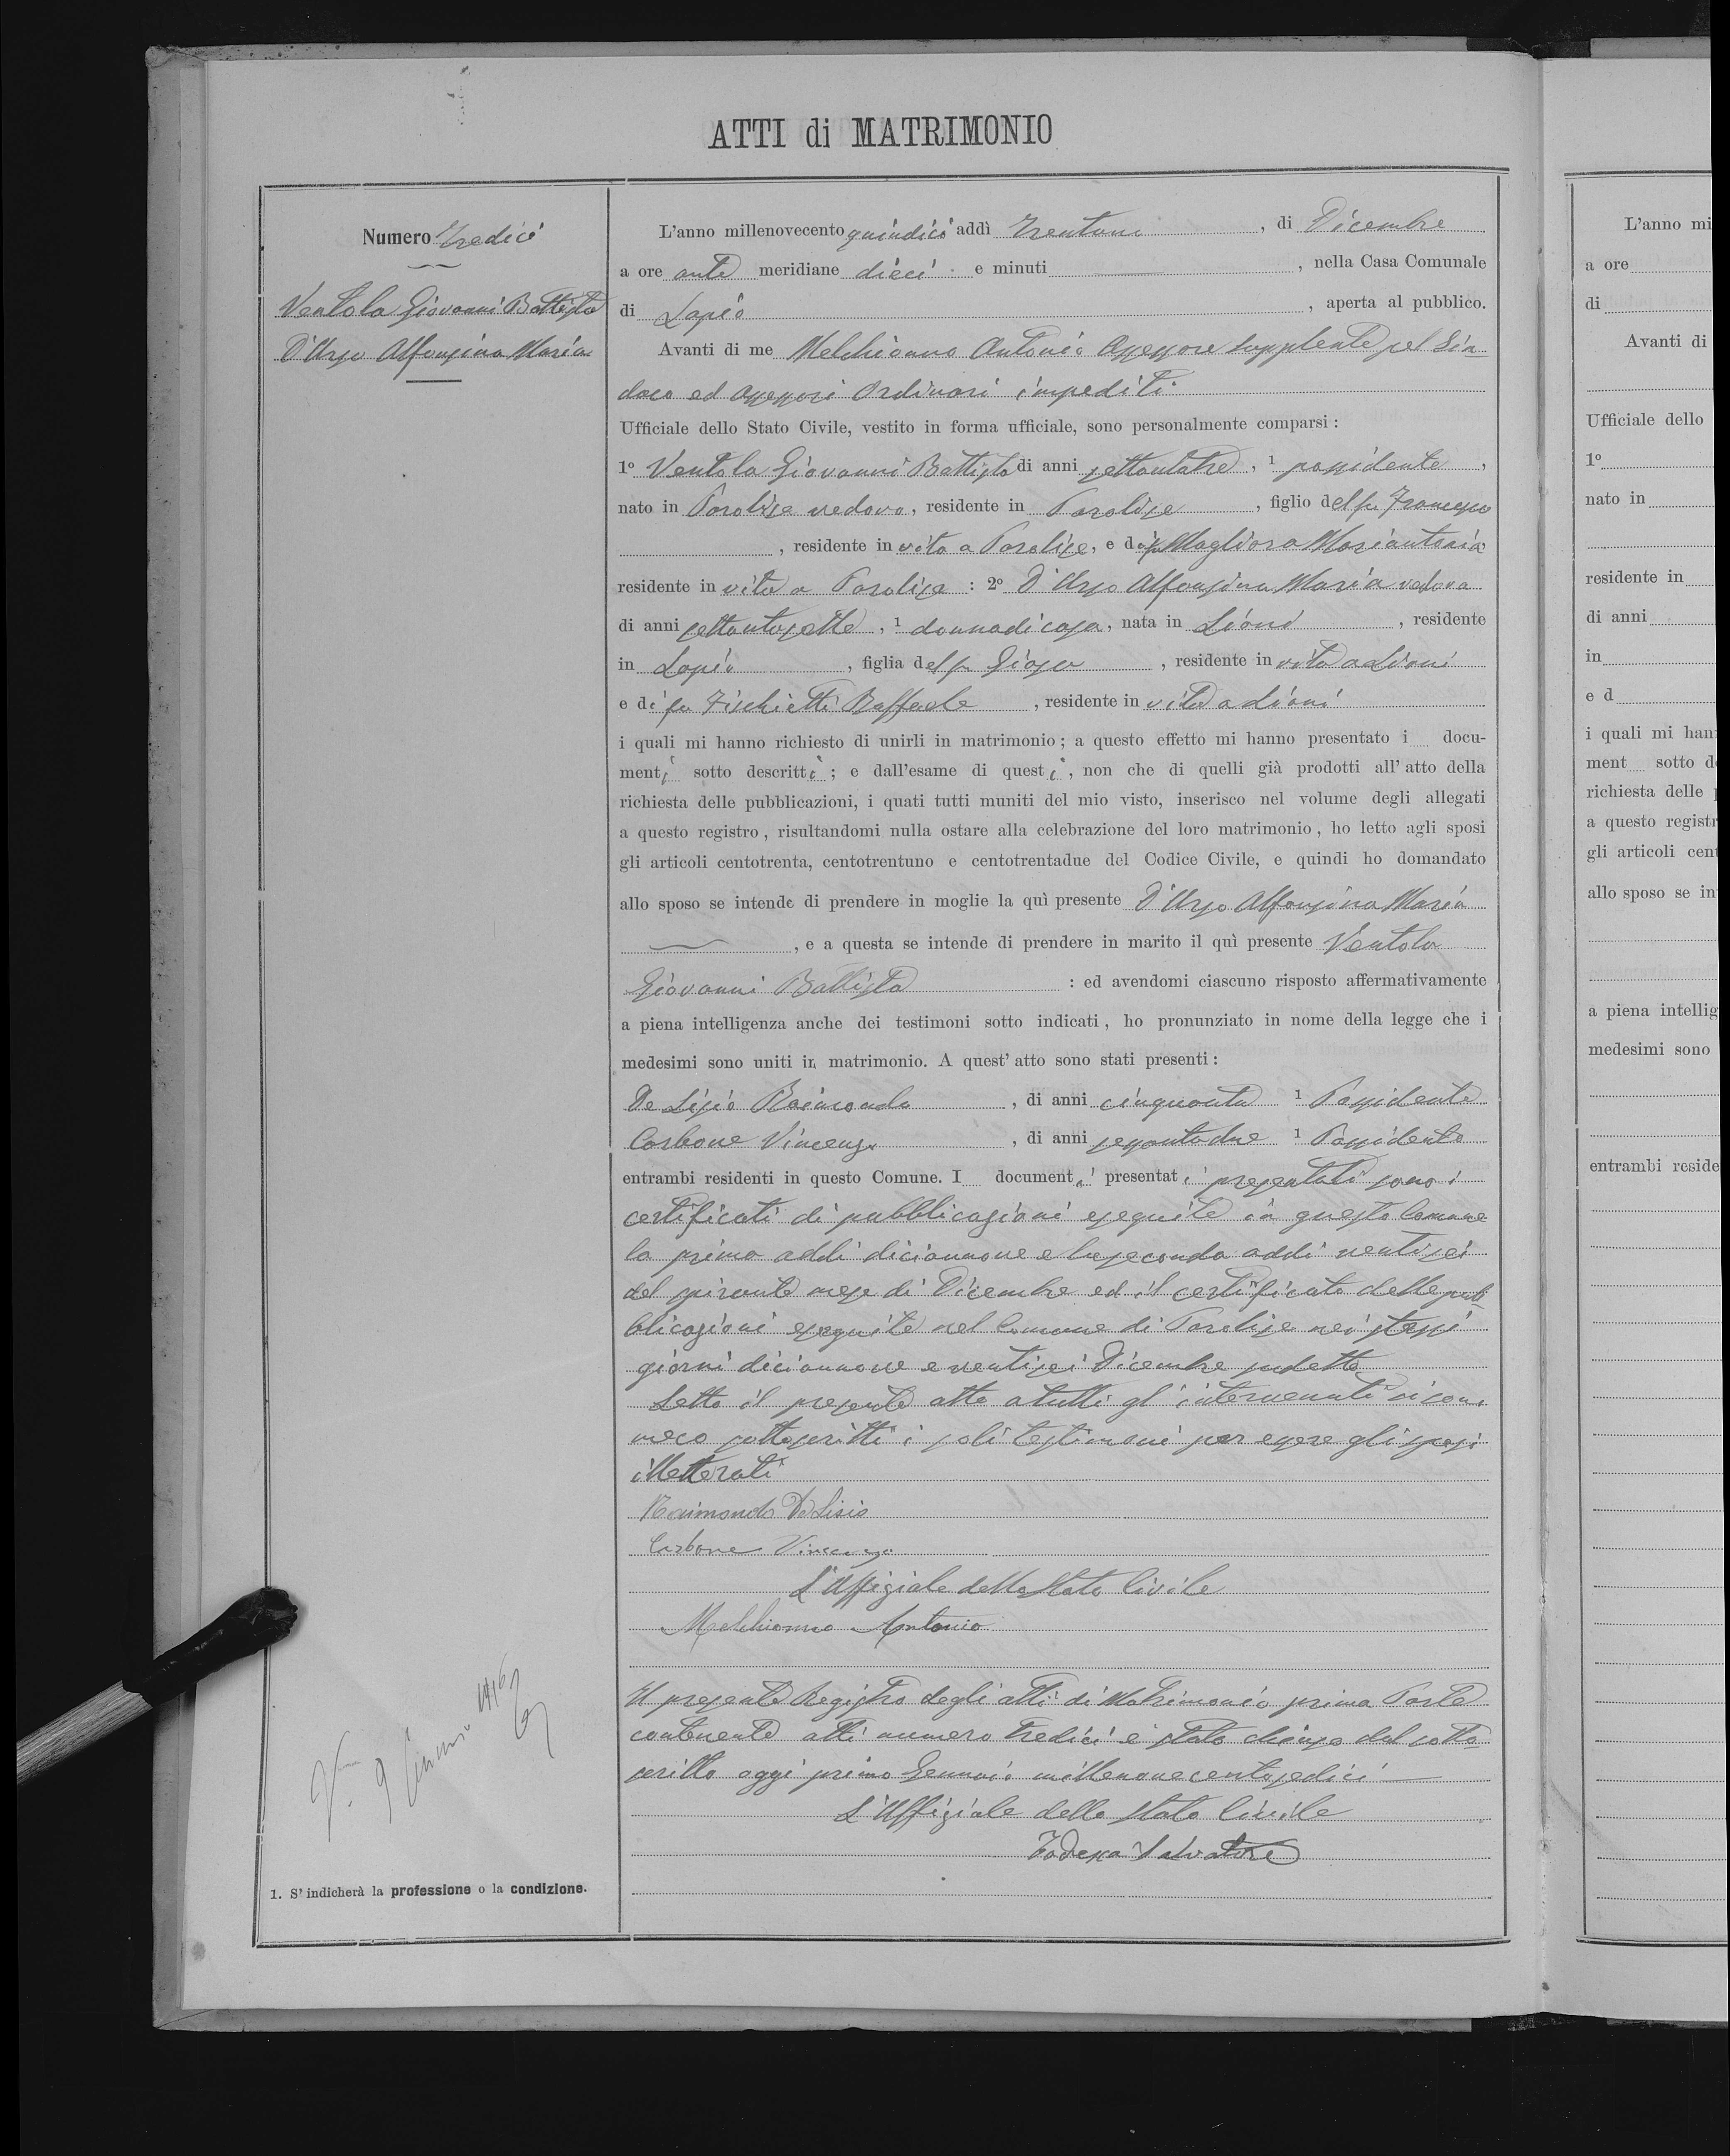 ATTI di MATRIMONIO
Numero Tredici
Ventola Giovanni Battista
D'Urso Alfonsina Maria
L'anno millenovecento quindici addì Trentuno, di Dicembre
a ore ante meridiane dieci e minuti, nella Casa Comunale
di Lapio, aperta al pubblico.
Avanti di me Melchionno Antonio Assessore supplente pel Sin-
daco ed assessori ordinari impediti
Ufficiale dello Stato Civile, vestito in forma ufficiale, sono personalmente comparsi:
1º Ventola Giovanni Battista di anni settantatre, 1 possidente,
nato in Parolise vedovo, residente in Parolise, figlio del fu Francesco
, residente in vita a Parolise, e di fu Magliora Mariantonia
residente in vita a Parolise: 2º D'Urso Alfonsina Maria vedova
di anni settantasette, 1 donna di casa, nata in Lioni, residente
in Lapio, figlia del fu Gioso, residente in vita a Lioni
e di fu Fischietti Raffaela, residente in vita a Lioni
i quali mi hanno richiesto di unirli in matrimonio; a questo effetto mi hanno presentato i docu-
menti sotto descritti; e dall'esame di questi, non che di quelli già prodotti all'atto della
richiesta delle pubblicazioni, i quati tutti muniti del mio visto, inserisco nel volume degli allegati
a questo registro, risultandomi nulla ostare alla celebrazione del loro matrimonio, ho letto agli sposi
gli articoli centotrenta, centotrentuno e centotrentadue del Codice Civile, e quindi ho domandato
allo sposo se intende di prendere in moglie la quì presente D'Urso Alfonsina Maria
, e a questa se intende di prendere in marito il quì presente Ventola
Giovanni Battista: ed avendomi ciascuno risposto affermativamente
a piena intelligenza anche dei testimoni sotto indicati, ho pronunziato in nome della legge che i
medesimi sono uniti in matrimonio. A quest'atto sono stati presenti:
De Lisio Raimondo, di anni cinquanta 1 Possidente
Carbone Vincenzo, di anni sessantadue 1 Possidente
entrambi residenti in questo Comune. I documenti presentati presentati sono i
certificati di pubblicazioni eseguite in questo Comune
la prima addì diciannove e la seconda addì ventisei
del spirante mese di Dicembre ed il certificato delle pub-
blicazioni eseguite nel Comune di Parolise nei stessi
giorni diciannove e ventisei Dicembre sudetto
Letto il presente atto a tutti gl'intervenuti si sono
meco sottoscritti i soli testimoni per essere gli sposi
illetterati
Raimondo De Lisio
Carbone Vincenzo
L'Uffiziale dello Stato Civile
Melchionno Antonio
Il presente Registro degli atti di Matrimonio prima Parte
contenente atti numero tredici è stato chiuso dal sotto-
scritto oggi primo Gennaio millenovecentosedici
L'Uffiziale dello Stato Civile
Salvatore
9 1916
1. S'indicherà la professione o la condizione.
L'anno mi
a ore
di
Avanti di
Ufficiale dello
1º
nato in
residente in
di anni
in
e d
i quali mi han
ment sotto d
richiesta delle
a questo registr
gli articoli cen
allo sposo se in
a piena intellig
medesimi sono
entrambi reside